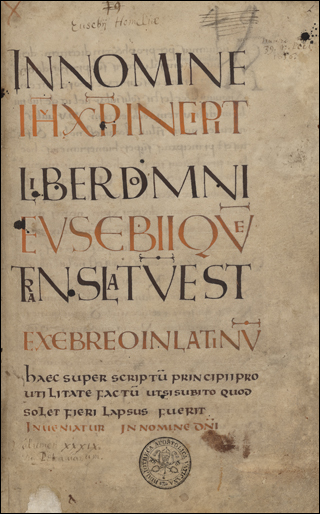 79
Eusebij Homeliae
IN NOMINE
IHU XPI INCIPIT
LIBER DOMNI
EUSEBII QUE
TRANSLATU EST
EX EBREO IN LATINŪ
haec super scriptū principii pro
utilitate factū ut si subito quod
solet fieri lapsus fuerit
Inveniatur IN NOMINE DNI
XXXIX